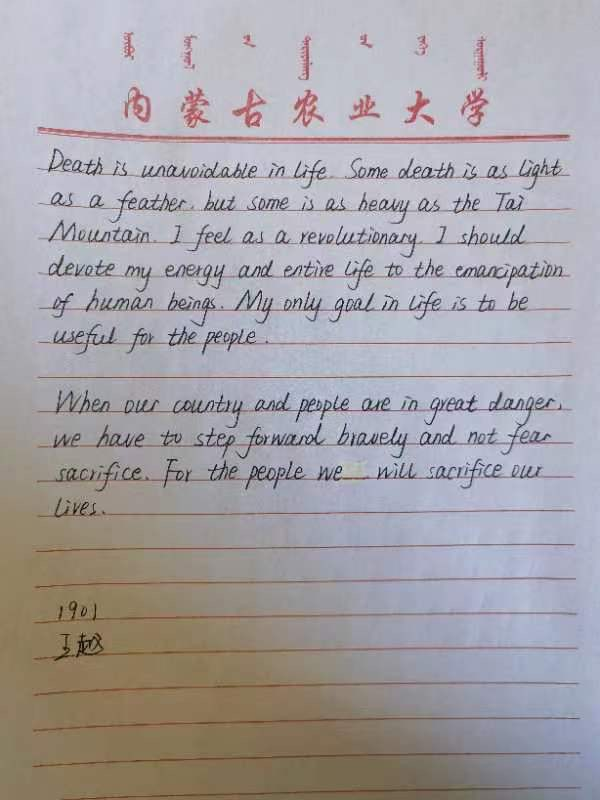 内蒙古农业大学
Death is unavoidable in life. Some death is as light
as a feather, but some is as heavy as the Tai
Mountain. I feel as a revolutionary. I should
devote my energy and entire life to the emancipation
of human beings. My only goal in life is to be
useful for the people.
When our country and people are in great danger,
we have to step forward bravely and not fear
sacrifice. For the people we will sacrifice our
lives.
1901
王越